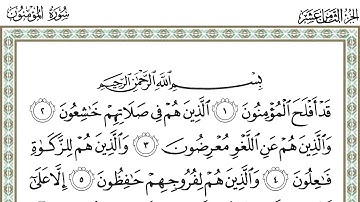 سُورَةُ المُؤْمِنُونَ الجُزْءُ الثَّامِنَ عَشَرَ
بِسْمِ ٱللَّهِ ٱلرَّحْمَٰنِ ٱلرَّحِيمِ
قَدْ أَفْلَحَ ٱلْمُؤْمِنُونَ ١ ٱلَّذِينَ هُمْ فِى صَلَاتِهِمْ خَٰشِعُونَ ٢
وَٱلَّذِينَ هُمْ عَنِ ٱللَّغْوِ مُعْرِضُونَ ٣ وَٱلَّذِينَ هُمْ لِلزَّكَوٰةِ
فَٰعِلُونَ ٤ وَٱلَّذِينَ هُمْ لِفُرُوجِهِمْ حَٰفِظُونَ ٥ إِلَّا عَلَىٰٓ